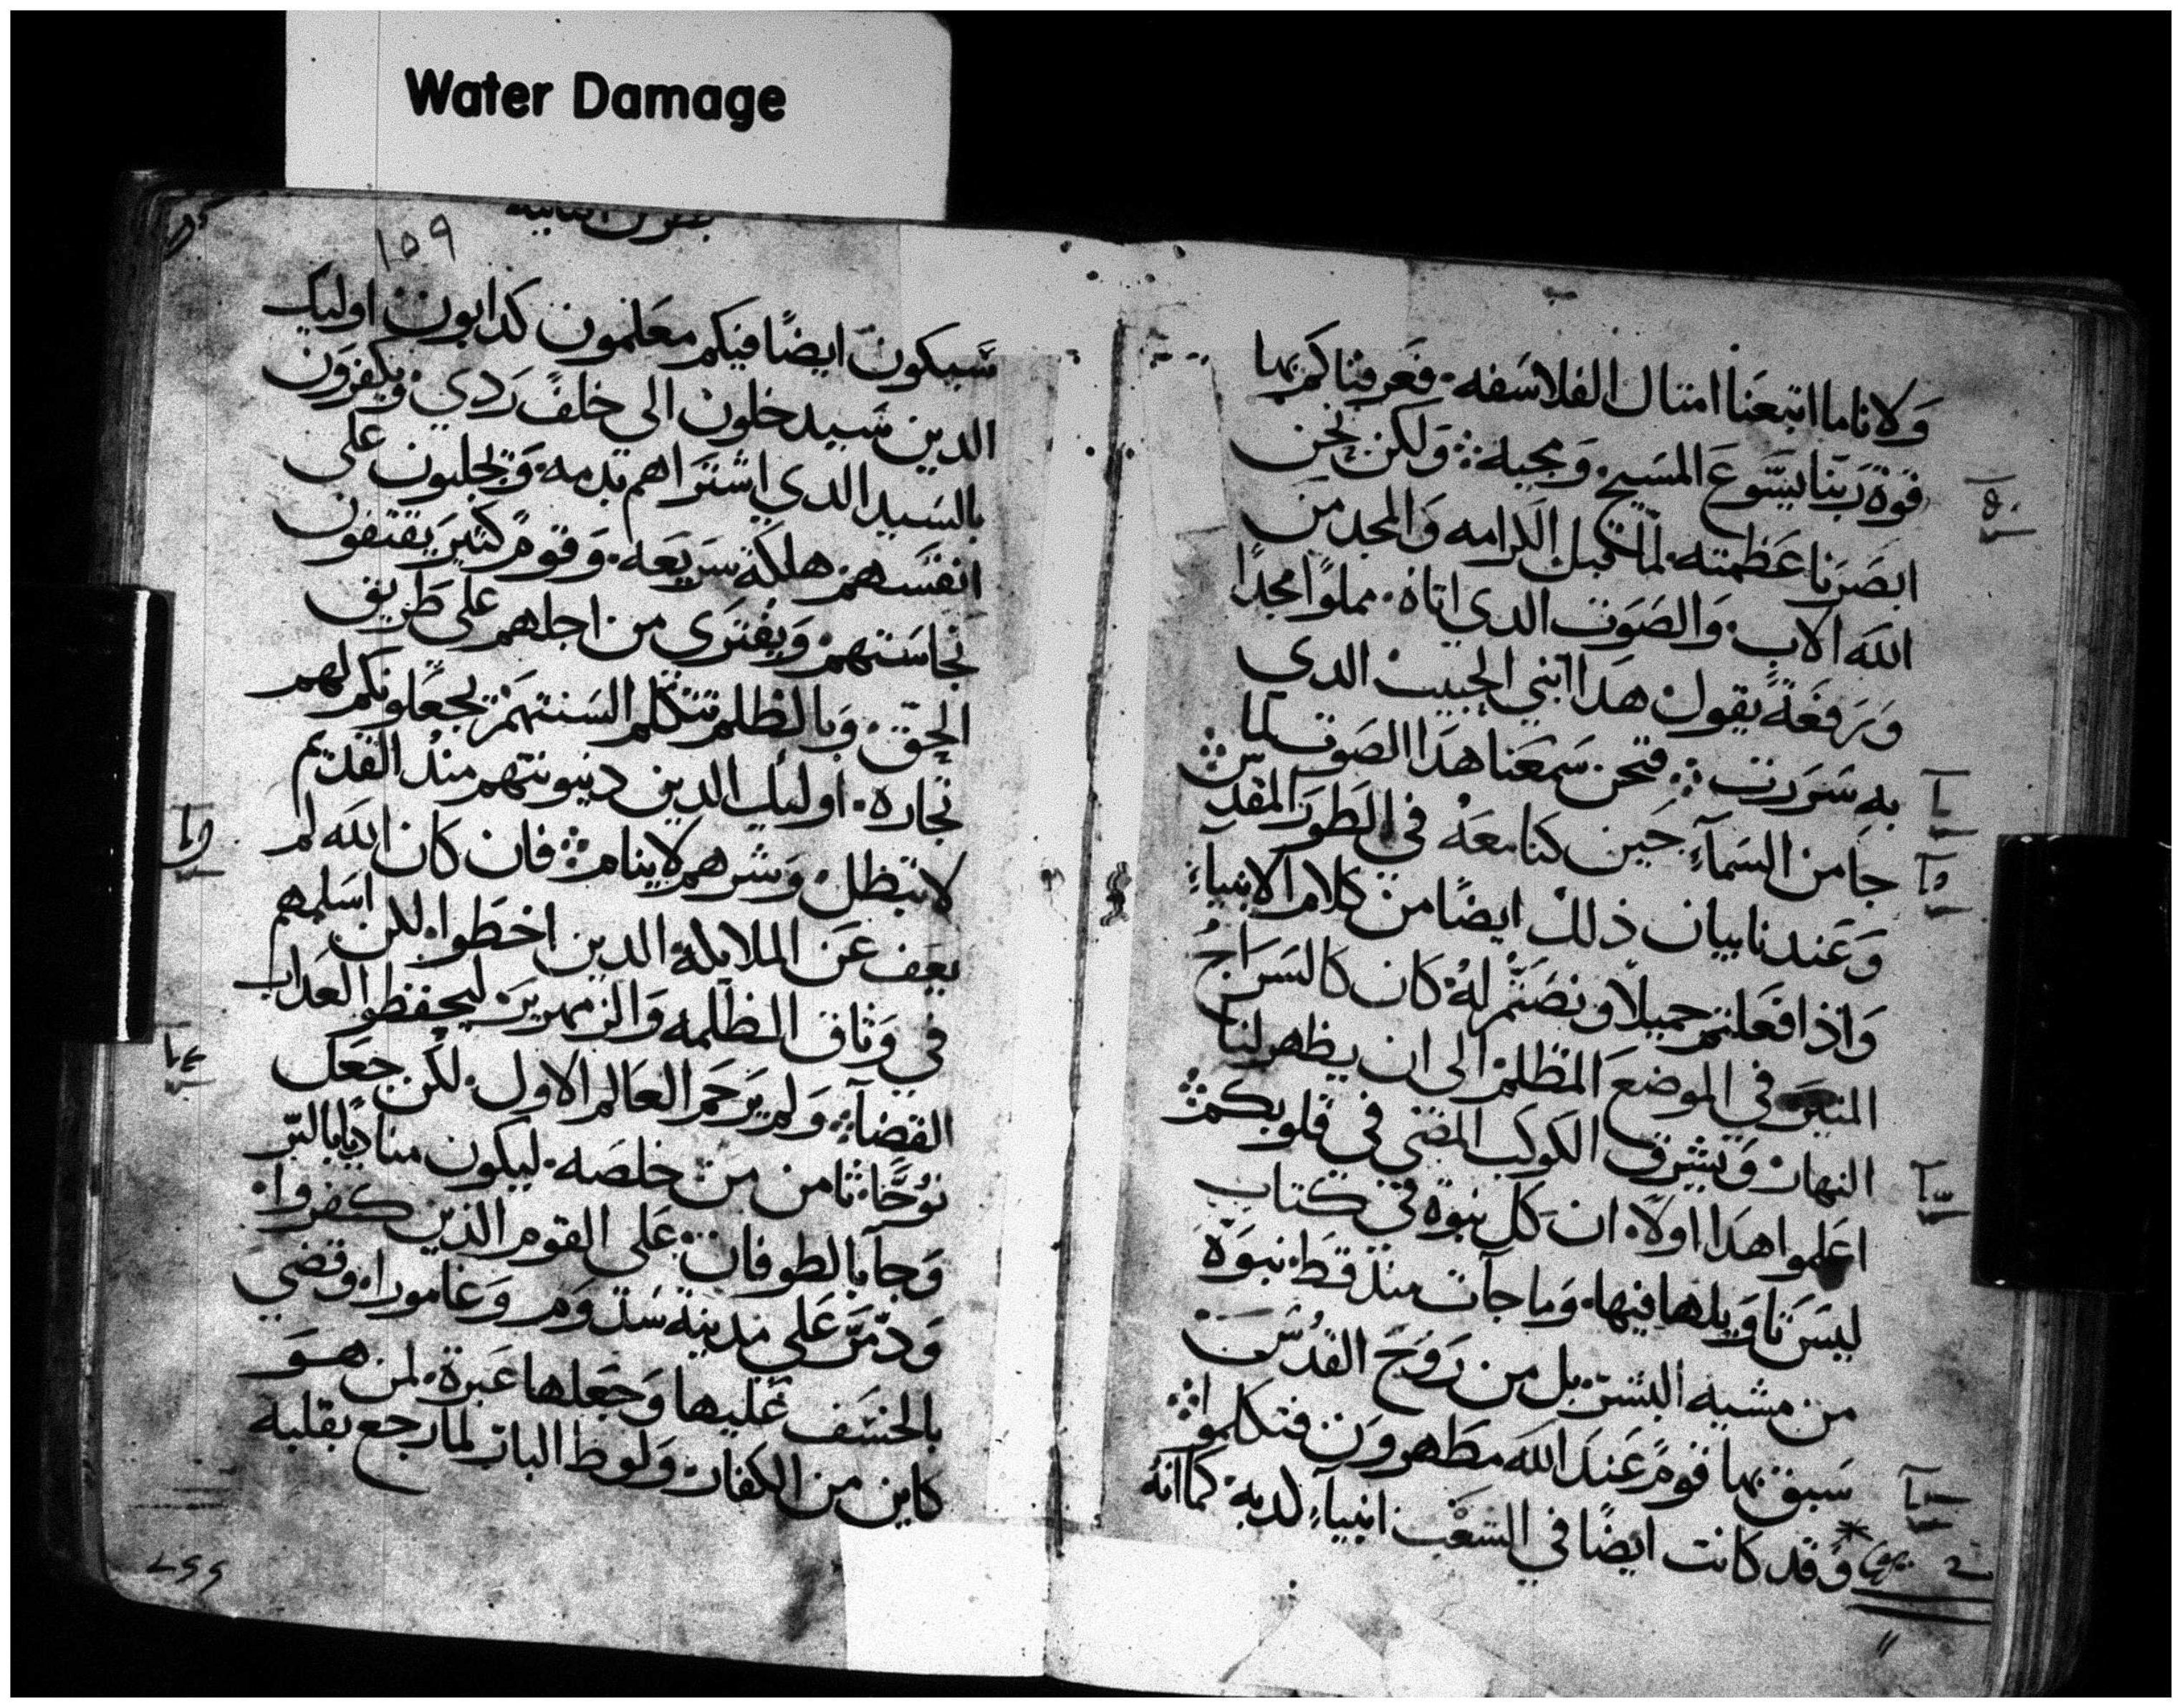 Water Damage
ولاناما اتبعنا امتال الفلاسفه. فعرفناكم بها
قوة ربنا يسوع المسيح. ومجيه ولكن نحن
ابصرنا عظمته لما قبل الكرامه والمجد من
الله الاب. والصوت الدي اتاه. مملوا مجدا
ورفعة يقول هدا ابني الحبيب الدي
به سررت فنحن سمعنا هدا الصوت لما
جا من السمآء. حين كنا معه في الطور المقدس
وعندنا بيان ذلك ايضا من كلام الانبيآء
واذا فعلتم جميلا ونصتم له كان كالسراج
المنير في الموضع المظلم الى ان يظهر لنا
النهار ويشرق الكوكب المضي في قلوبكم
اعلموا هدا اولا. ان كل نبوة في كتاب
ليس تاويلها فيها. وما جات مند قط نبوة
من مشيه البشر بل من روح القدس
سبق بها قوم عند الله مطهرون فتكلموا
وقد كانت ايضا في الشعب انبيآء لدبه كما انه
١٥٩
سيكون ايضا فيكم معلمون كدابون اوليك
الدين سيدخلون الى خلف ردي ويكفرون
بالسيد الدي اشتراهم بدمه. ويجلبون على
انفسهم هلكة سريعه. وقوم كثير يقتفون
نجاستهم ويفترى من اجلهم على طريق
الحق. وبالظلم تتكلم السنتهم يجعلونكم لهم
تجاره. اوليك الدين دينونتهم مند القديم
لا تبطل وشرهم لا ينام فان كان الله لم
يعف عن الملايكة الدين اخطوا. لكن اسلمهم
في وثاق الظلمه والزمهرير ليحفظوا العداب
القضآء ولم يرحم العالم الاول. لكن جعل
نوحا. ثامن من خلصه. ليكون مناديا بالبر
وجآ بالطوفان على القوم الذين كفروا.
ودمر على مدينة سدوم وغامورا. وقضى
بالخسف عليها وجعلها عبرة. لمن هو
كاين من الكفار. ولوط البار لما رجع بقلبه